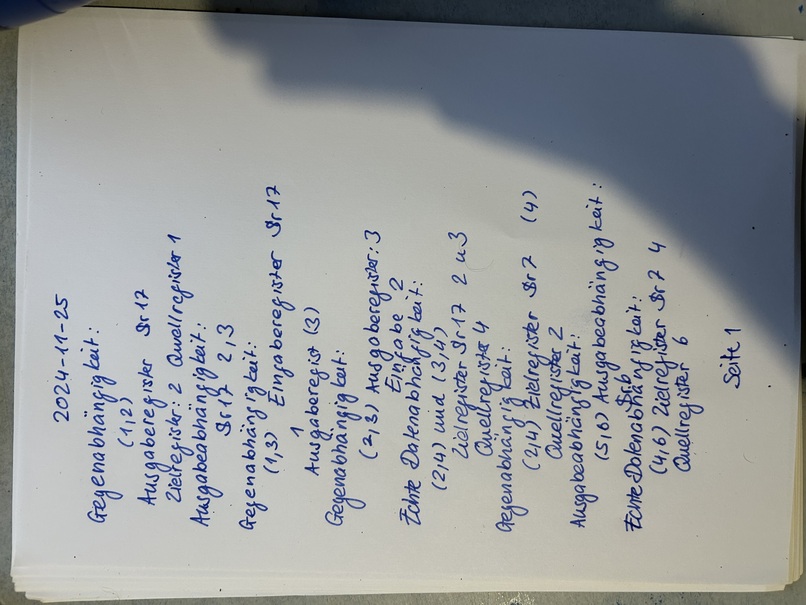 2024-11-25
Gegenabhängigkeit:
(1,2)
Ausgaberegister $r17
Zielregister: 2 Quellregister 1
Ausgabeabhängigkeit:
$r17 2,3
Gegenabhängigkeit:
(1,3) Eingaberegister $r17
1
Ausgaberegist (3)
Gegenabhängigkeit:
(2,3) Ausgaberegister: 3
Eingabe 2
Echte Datenabhängigkeit:
(2,4) und (3,4)
Zielregister $r17 2 u 3
Quellregister 4
Gegenabhängigkeit:
(2,4) Zielregister $r7 (4)
Quellregister 2
Ausgabeabhängigkeit:
(5,6) Ausgabeabhängigkeit:
$r6
Echte Datenabhängigkeit:
(4,6) Zielregister $r7 4
Quellregister 6
Seite 1